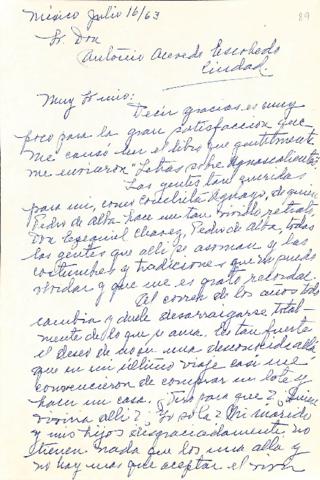 México Julio 16/63
89
Sr. Don
Antonio Acevedo Escobedo
Ciudad
Muy Sr mio:
Decir gracias es muy
poco para la gran satisfacción que
me causó ver el libro que gentilmente
me enviaron "Letras sobre Aguascalientes"
Las gentes tan queridas
para mi, como Conchita Aguayo, de quien
Pedro de Alba hace un tan vivido retrato,
Don Ezequiel Chavez, Pedro de Alba, todas
las gentes que alli se asoman y las
costumbres y tradiciones que no puedo
olvidar y que me es grato recordar.
Al correr de los años todo
cambia y duele desarraigarse total
mente de lo que se ama. Es tan fuerte
el deseo de no ser una desconocida allá
que en mi último viaje casi me
convencieron de comprar un lote y
hacer un casa. ¿Pero para que? ¿Quien
viviria alli? ¿Yo sola? Mi marido
y mis hijos desgraciadamente no
tienen nada que los una alla y
no hay mas que aceptar el